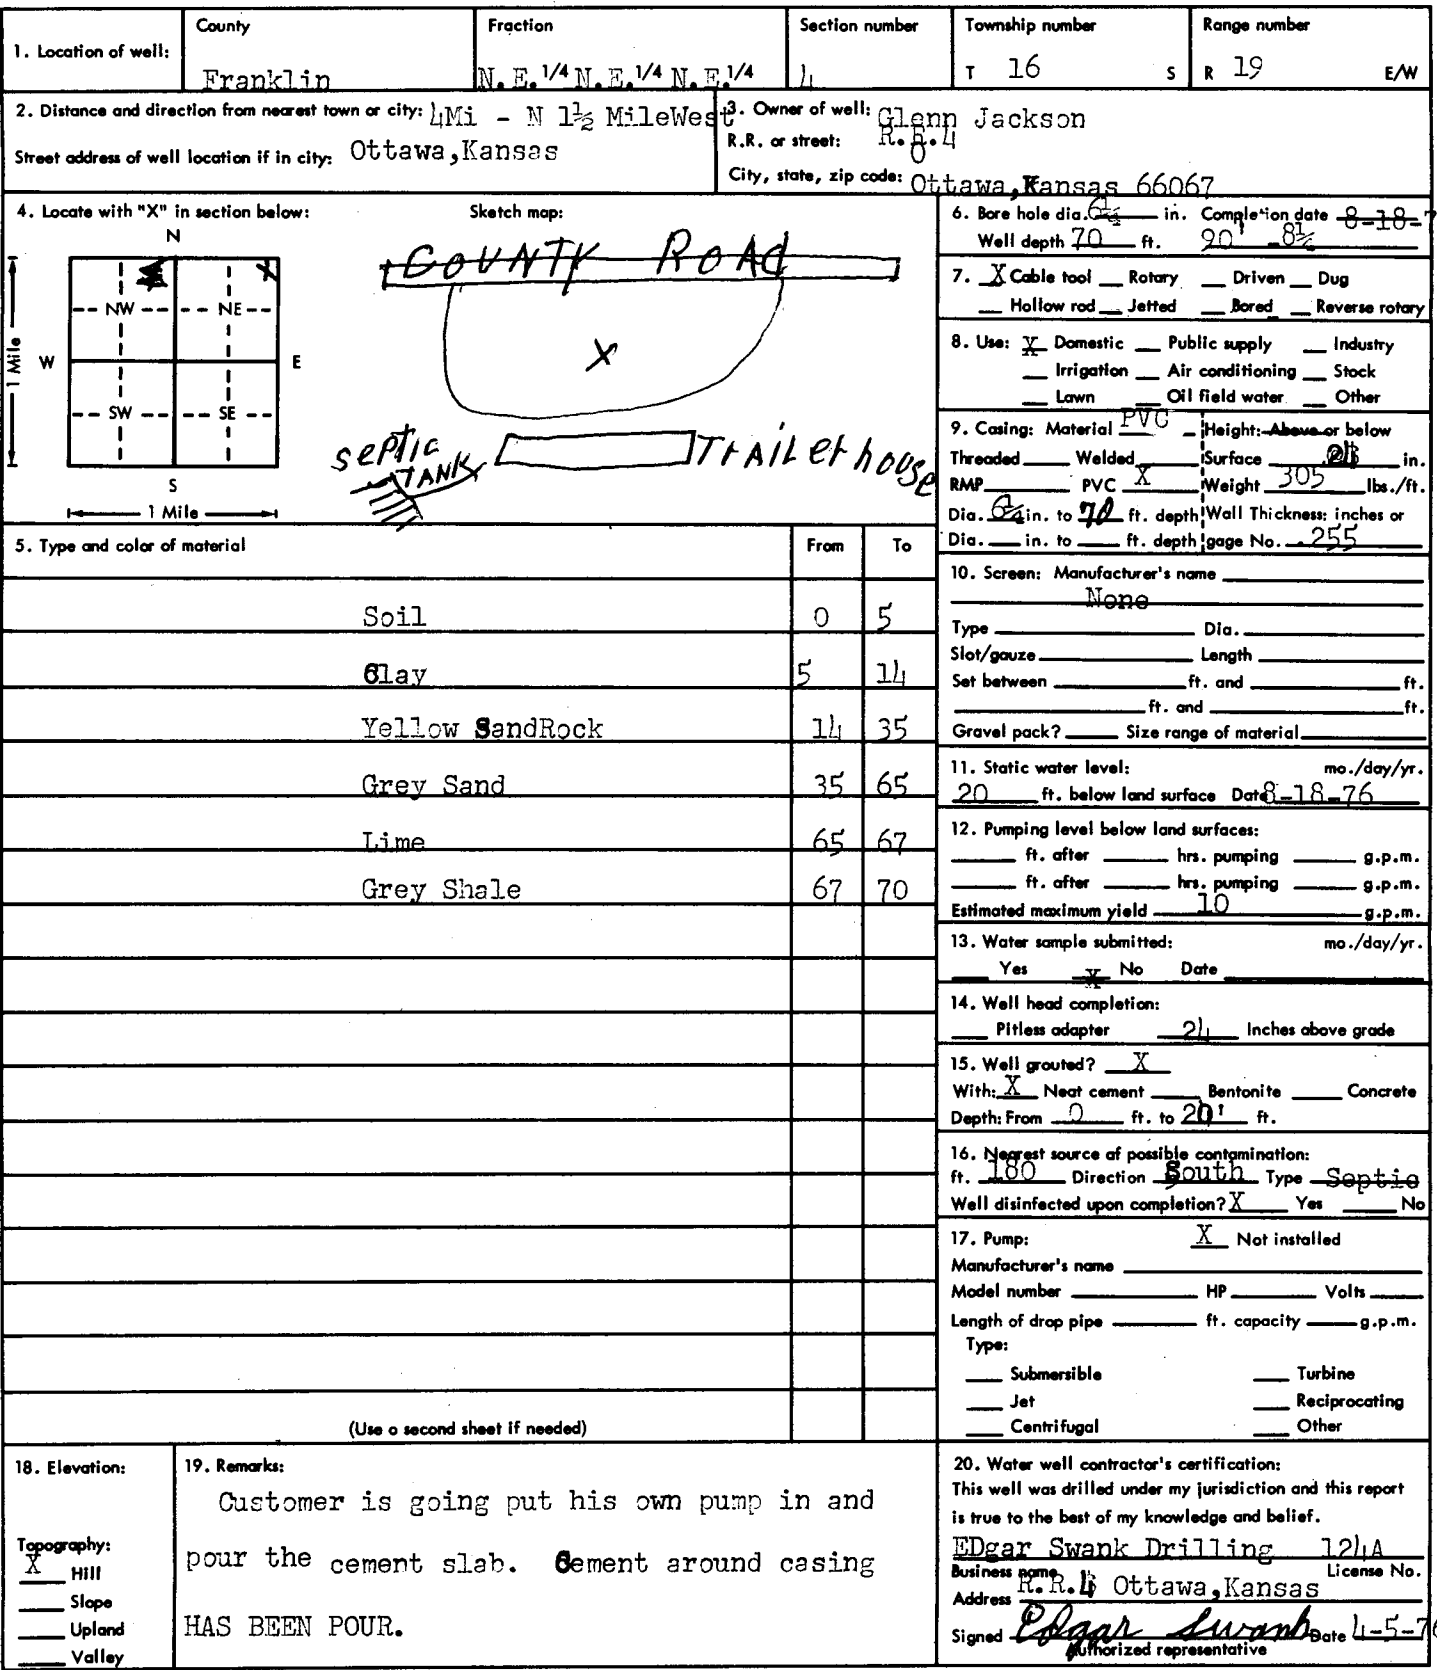 County Fraction Section number Township number Range number
1. Location of well:
Franklin N.E. 1/4 N.E. 1/4 N.E. 1/4 4 T 16 S R 19 E/W
2. Distance and direction from nearest town or city: 4Mi - N 1½ MileWest
Street address of well location if in city: Ottawa,Kansas
3. Owner of well: Glenn Jackson
R.R. or street: R.R.4
City, state, zip code: Ottawa,Kansas 66067
4. Locate with "X" in section below: Sketch map:
N
NW NE
W E
SW SE
S
1 Mile
1 Mile
X
COUNTY ROAD
X
septic
TANK
TrAilerhouse
5. Type and color of material From To
Soil 0 5
Clay 5 14
Yellow SandRock 14 35
Grey Sand 35 65
Lime 65 67
Grey Shale 67 70
(Use a second sheet if needed)
6. Bore hole dia. 6¼ in. Completion date 8-18-7
Well depth 70 ft. 20' 8½
7. X Cable tool Rotary Driven Dug
Hollow rod Jetted Bored Reverse rotary
8. Use: X Domestic Public supply Industry
Irrigation Air conditioning Stock
Lawn Oil field water Other
9. Casing: Material PVC Height: Above or below
Threaded Welded Surface in.
RMP PVC X Weight 305 lbs./ft.
Dia. 6¼ in. to 70 ft. depth Wall Thickness: inches or
Dia. in. to ft. depth gage No. .255
10. Screen: Manufacturer's name
None
Type Dia.
Slot/gauze Length
Set between ft. and ft.
ft. and ft.
Gravel pack? Size range of material
11. Static water level: mo./day/yr.
20 ft. below land surface Date 8-18-76
12. Pumping level below land surfaces:
ft. after hrs. pumping g.p.m.
ft. after hrs. pumping g.p.m.
Estimated maximum yield 10 g.p.m.
13. Water sample submitted: mo./day/yr.
Yes X No Date
14. Well head completion:
Pitless adapter 24 Inches above grade
15. Well grouted? X
With: X Neat cement Bentonite Concrete
Depth: From 0 ft. to 20' ft.
16. Nearest source of possible contamination:
ft. 180 Direction South Type Septic
Well disinfected upon completion? X Yes No
17. Pump: X Not installed
Manufacturer's name
Model number HP Volts
Length of drop pipe ft. capacity g.p.m.
Type:
Submersible Turbine
Jet Reciprocating
Centrifugal Other
18. Elevation:
Topography:
X Hill
Slope
Upland
Valley
19. Remarks:
Customer is going put his own pump in and
pour the cement slab. Cement around casing
HAS BEEN POUR.
20. Water well contractor's certification:
This well was drilled under my jurisdiction and this report
is true to the best of my knowledge and belief.
EDgar Swank Drilling 124A
Business name License No.
Address R.R.4 Ottawa,Kansas
Signed Edgar Swank Date 4-5-76
Authorized representative